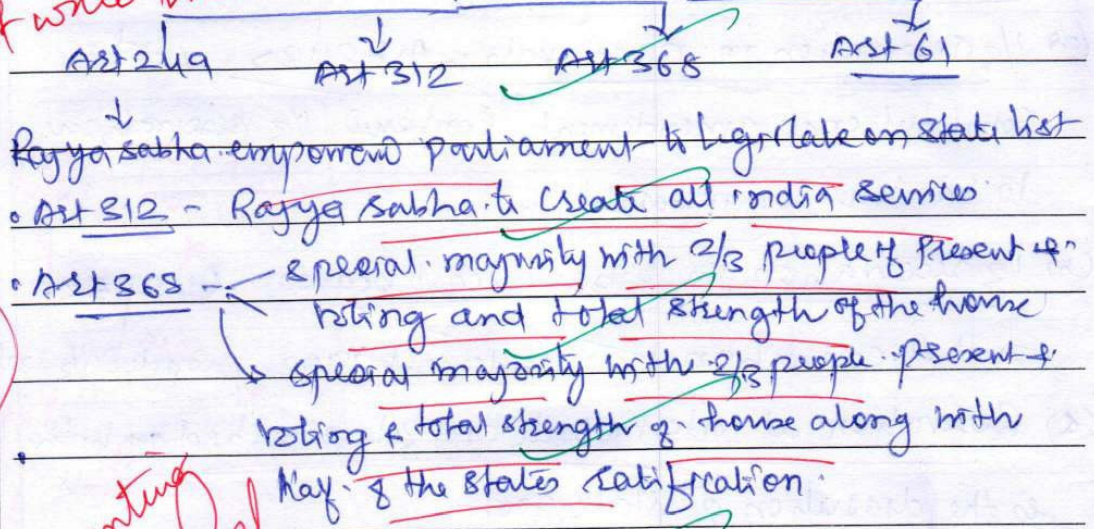 write
Art 249 Art 312 Art 368 Art 61
Rajya sabha empowers parliament to legislate on state list
• Art 312 - Rajya sabha to create all india services
• Art 368 - special majority with 2/3 people of Present &
voting and total strength of the house
special majority with 2/3 people present &
voting & total strength of house along with
Half of the states ratification.